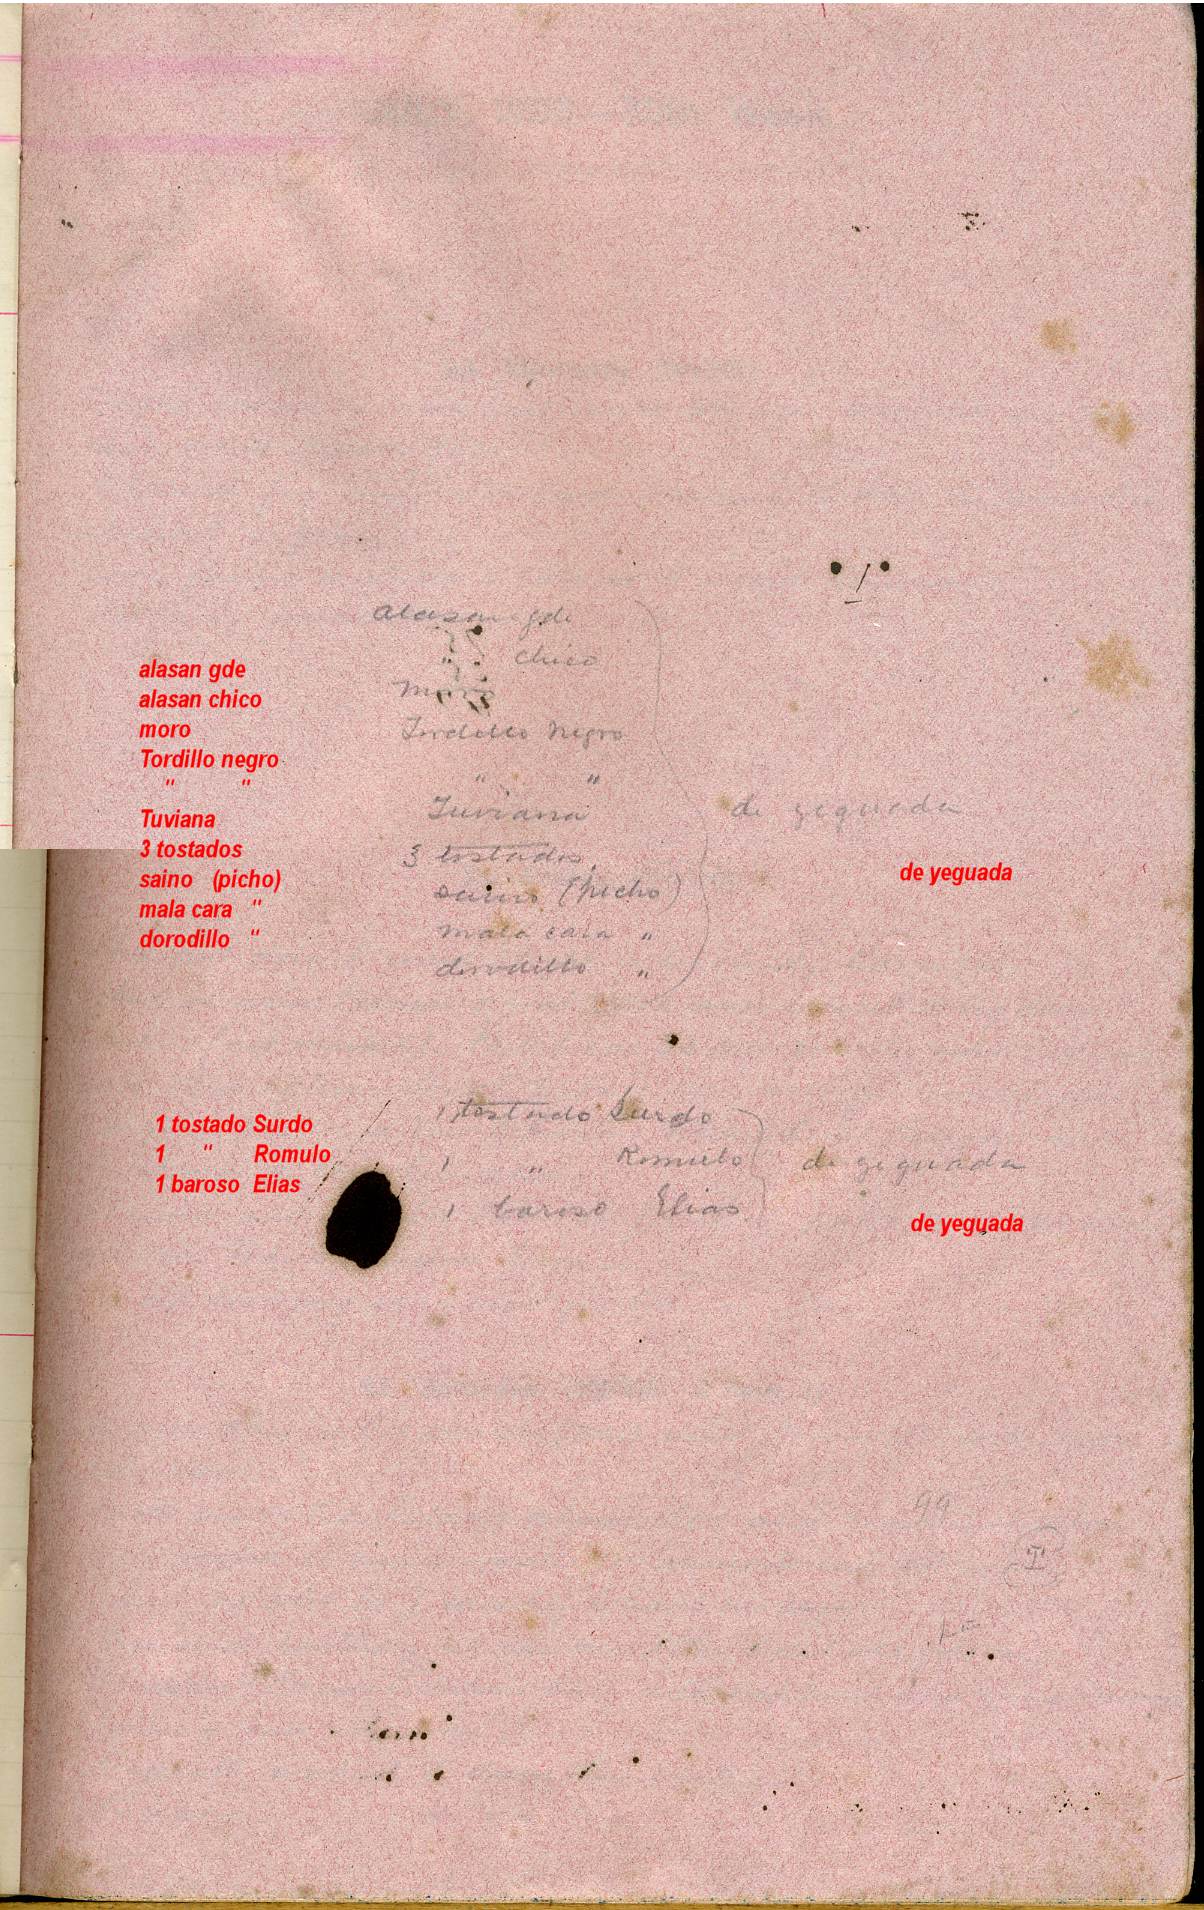 alasan gde
" chico
moro
Tordillo negro
" "
Tuviana
de yeguada
3 tostados
saino (picho)
mala cara "
dorodillo "
1 tostado Surdo
1 " Romulo
de yeguada
1 baroso Elias
99
alasan gde
alasan chico
moro
Tordillo negro
" "
Tuviana
3 tostados
saino (picho)
mala cara "
dorodillo "
de yeguada
1 tostado Surdo
1 " Romulo
1 baroso Elias
de yeguada